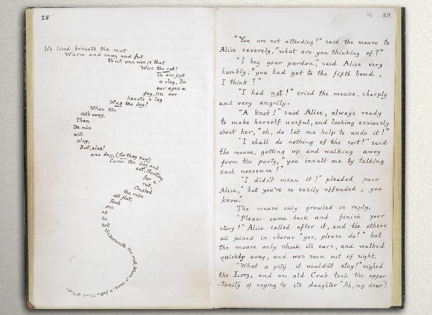 28
We lived beneath the mat
Warm and snug and fat
But one woe, & that
Was the cat!
To our joys
a clog, In
our eyes a
fog, On our
hearts a log
Was the dog!
When the
cat's away,
Then
The mice
will
play,
But, alas!
one day, (So they say)
Came the dog and
cat, Hunting
for a
rat,
Crushed
the mice
all flat,
Each
one
as
he
sat
Underneath the mat, Warm, & snug, & fat. Think of that!
29
"You are not attending!" said the mouse to
Alice severely, "what are you thinking of?"
"I beg your pardon," said Alice very
humbly, "you had got to the fifth bend,
I think?"
"I had not!" cried the mouse, sharply
and very angrily.
"A knot!" said Alice, always ready
to make herself useful, and looking anxiously
about her, "oh, do let me help to undo it!"
"I shall do nothing of the sort!" said
the mouse, getting up and walking away
from the party, "you insult me by talking
such nonsense!"
"I didn't mean it!" pleaded poor
Alice, "but you're so easily offended, you
know."
The mouse only growled in reply.
"Please come back and finish your
story!" Alice called after it, and the others
all joined in chorus "yes, please do!" but
the mouse only shook its ears, and walked
quickly away, and was soon out of sight.
"What a pity it wouldn't stay!" sighed
the Lory, and an old Crab took the oppor-
-tunity of saying to its daughter "Ah, my dear!